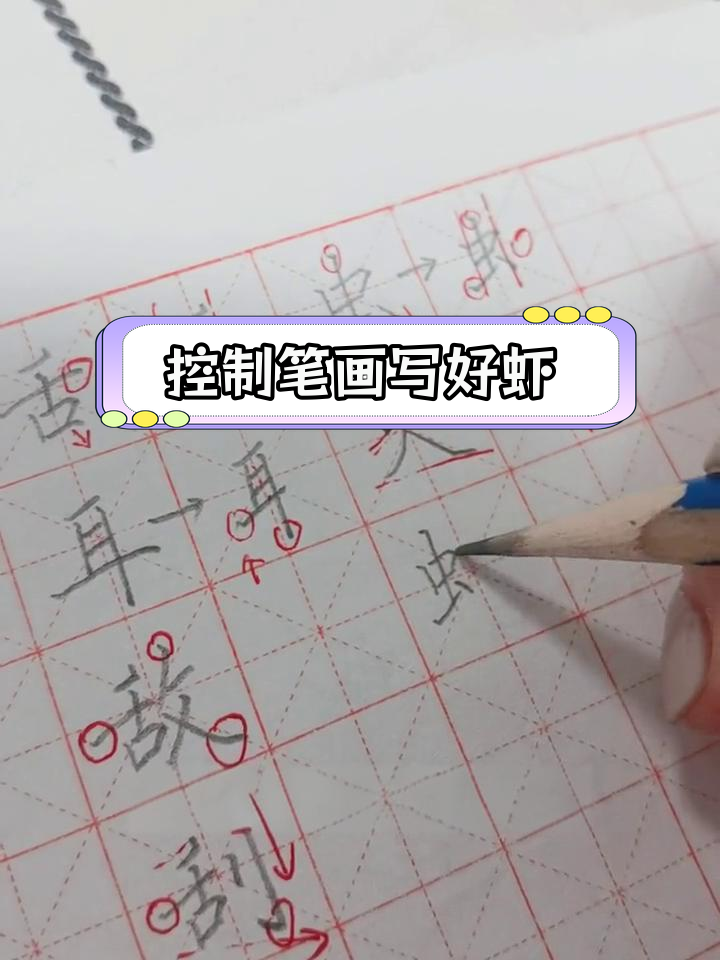 虫→虫
控制笔画写好虾
舌
耳→耳
虫
敌
刮